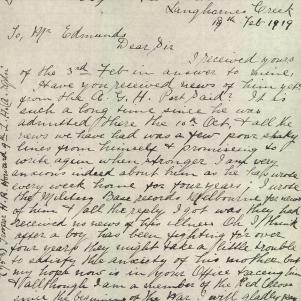 Langhornes Creek
19th Feb 1919
To, Mr Edmunds
Dear Sir
I received yours
of the 3rd Feb in answer to mine,
Have you received news of him yet
from the A. G. H. Port Said? It is
such a long time since he was
admitted there the 10th Oct, & all the
news we have had was a few poor shaky
lines from himself & promising to
write again when stronger. I am very
anxious indeed about him as he
every week home for four years; I wrote
the Military Base records Melbourne for news
of him & all the reply I got was they had
received no news of his illness Oh I think
after a boy has been fighting for over
four years they might take a little trouble
to satisfy the anxiety of his mother but
my hope now is in your Office
& although I am a member of the Red Cross
since the beginning of the War I will gladly
Howard 9th L. H.